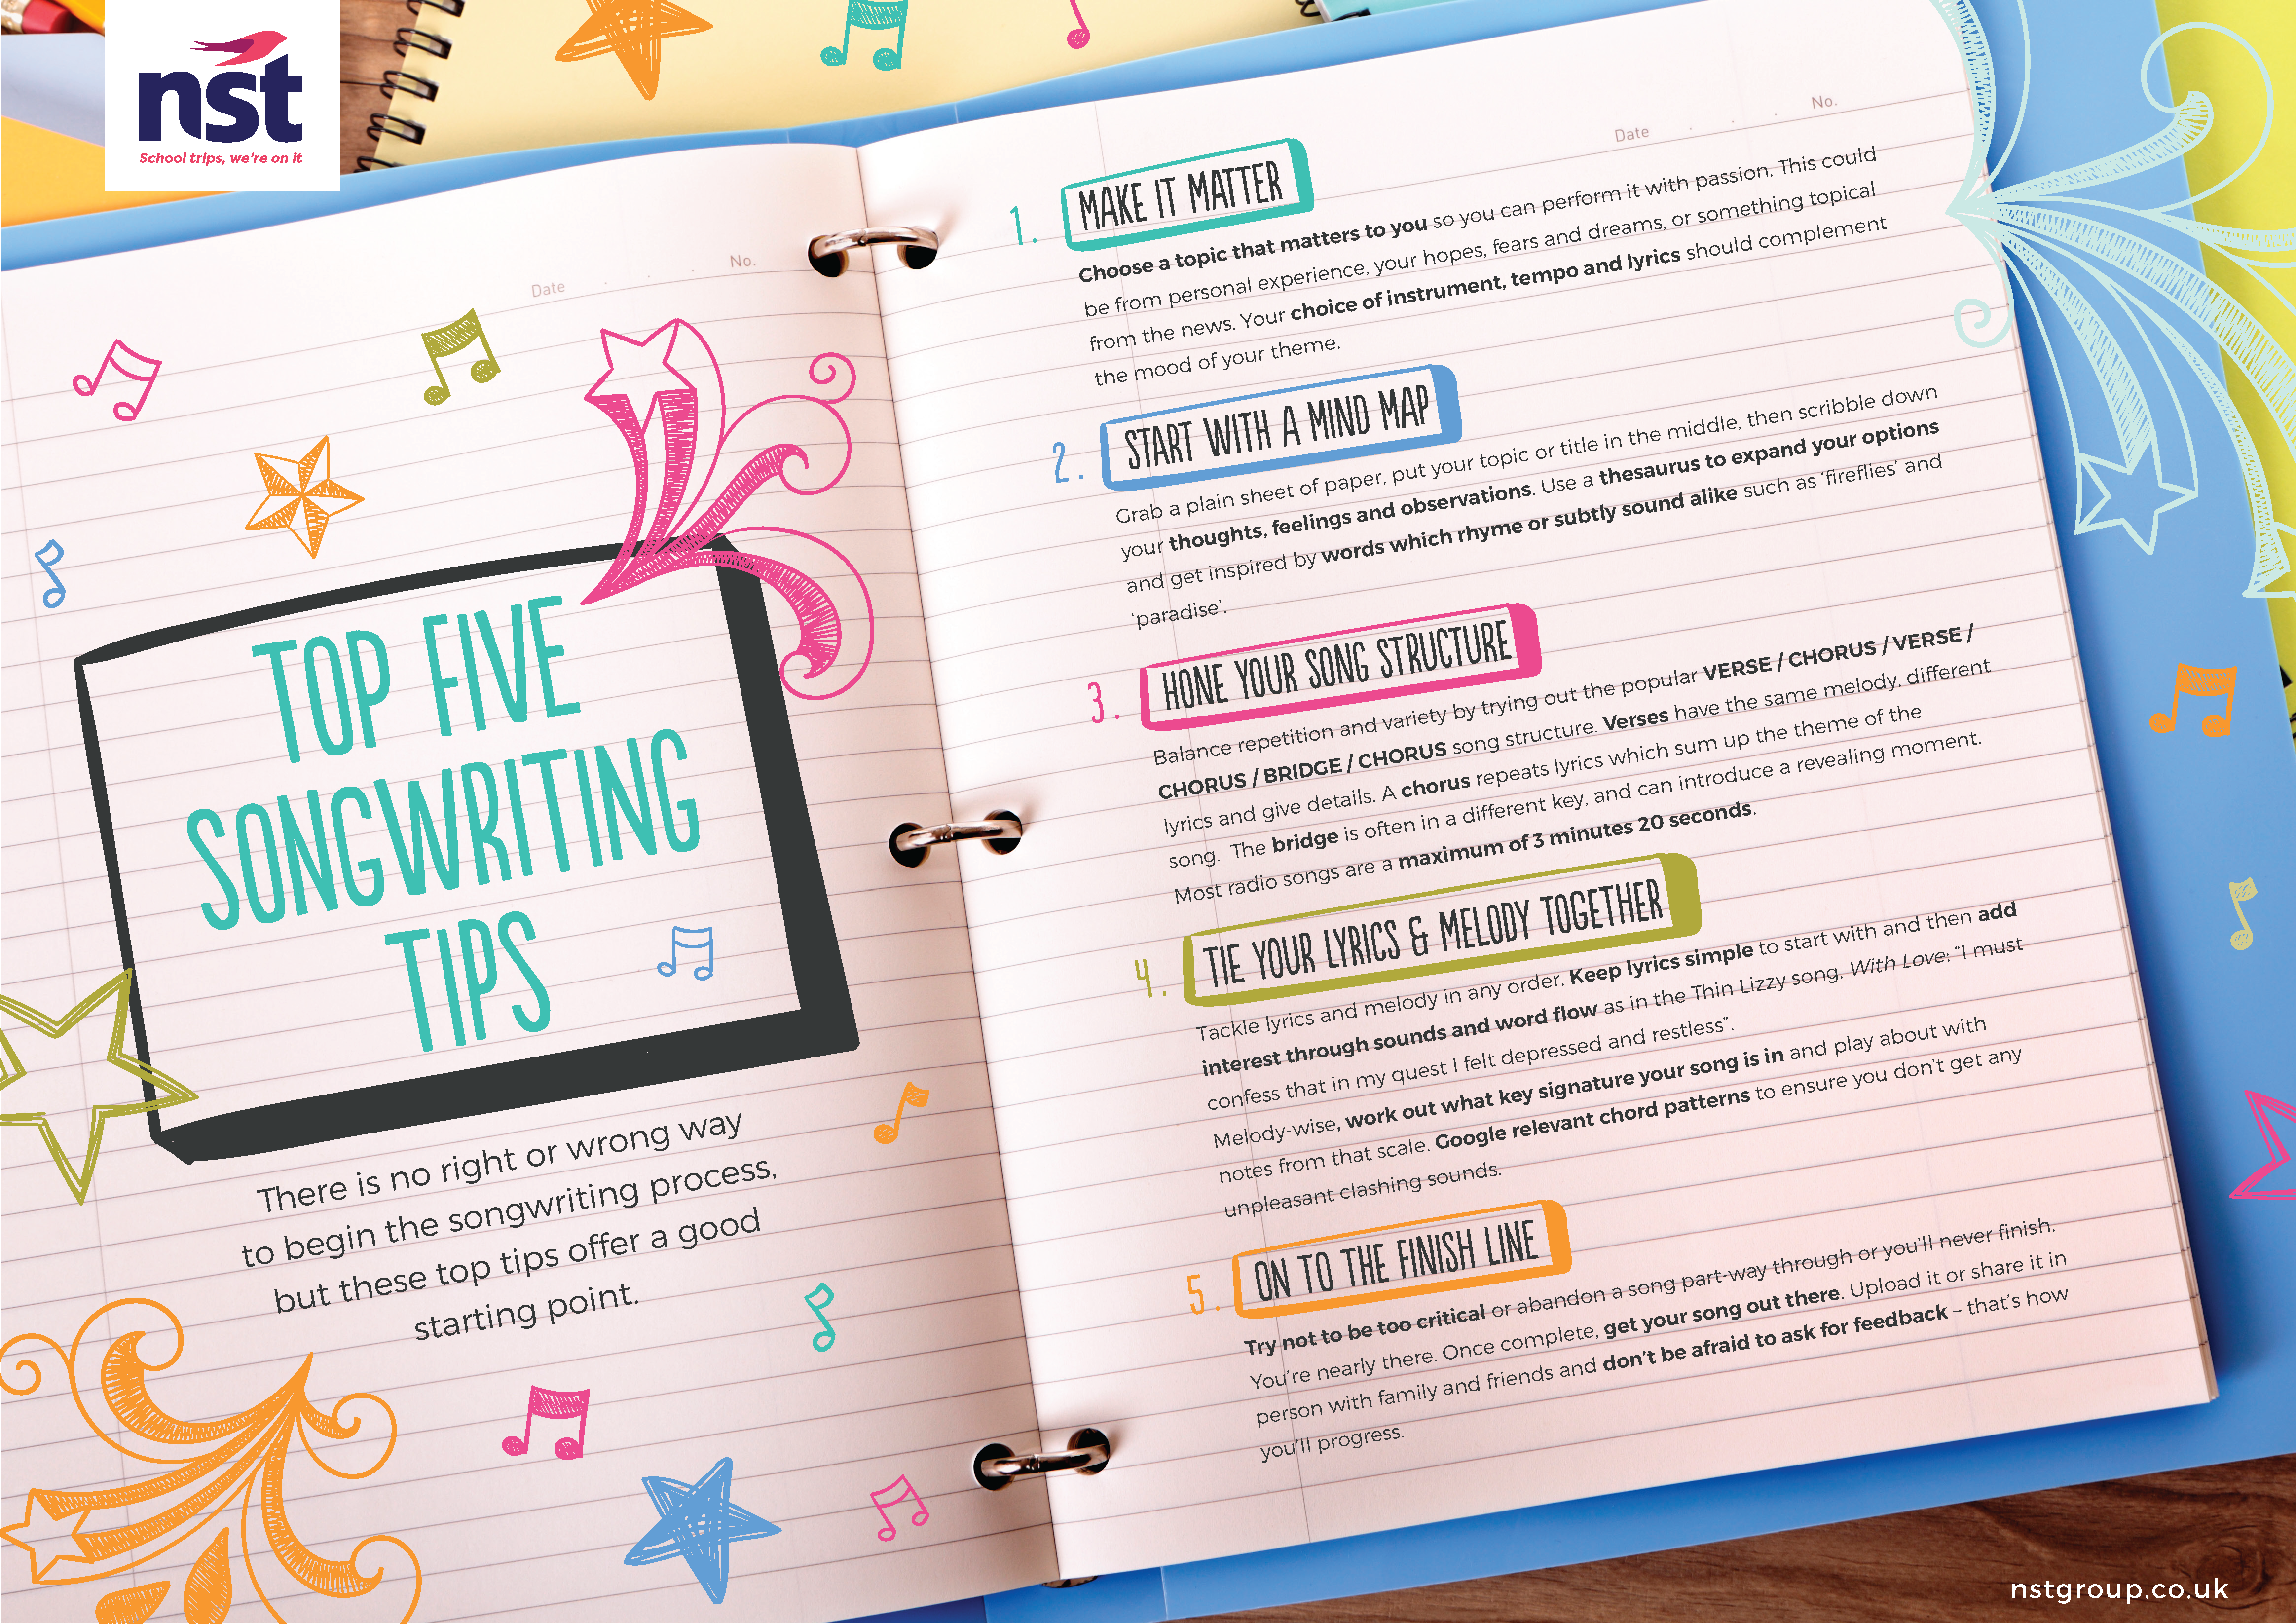 nst
School trips, we're on it
Date
No.
TOP FIVE
SONGWRITING
TIPS
There is no right or wrong way
to begin the songwriting process,
but these top tips offer a good
starting point.
Date
No.
1. MAKE IT MATTER
Choose a topic that matters to you so you can perform it with passion. This could
be from personal experience, your hopes, fears and dreams, or something topical
from the news. Your choice of instrument, tempo and lyrics should complement
the mood of your theme.
2. START WITH A MIND MAP
Grab a plain sheet of paper, put your topic or title in the middle, then scribble down
your thoughts, feelings and observations. Use a thesaurus to expand your options
and get inspired by words which rhyme or subtly sound alike such as 'fireflies' and
'paradise'.
3. HONE YOUR SONG STRUCTURE
Balance repetition and variety by trying out the popular VERSE / CHORUS / VERSE /
CHORUS / BRIDGE / CHORUS song structure. Verses have the same melody, different
lyrics and give details. A chorus repeats lyrics which sum up the theme of the
song. The bridge is often in a different key, and can introduce a revealing moment.
Most radio songs are a maximum of 3 minutes 20 seconds.
4. TIE YOUR LYRICS & MELODY TOGETHER
Tackle lyrics and melody in any order. Keep lyrics simple to start with and then add
interest through sounds and word flow as in the Thin Lizzy song, With Love: "I must
confess that in my quest I felt depressed and restless".
Melody-wise, work out what key signature your song is in and play about with
notes from that scale. Google relevant chord patterns to ensure you don't get any
unpleasant clashing sounds.
5. ON TO THE FINISH LINE
Try not to be too critical or abandon a song part-way through or you'll never finish.
You're nearly there. Once complete, get your song out there. Upload it or share it in
person with family and friends and don't be afraid to ask for feedback – that's how
you'll progress.
nstgroup.co.uk